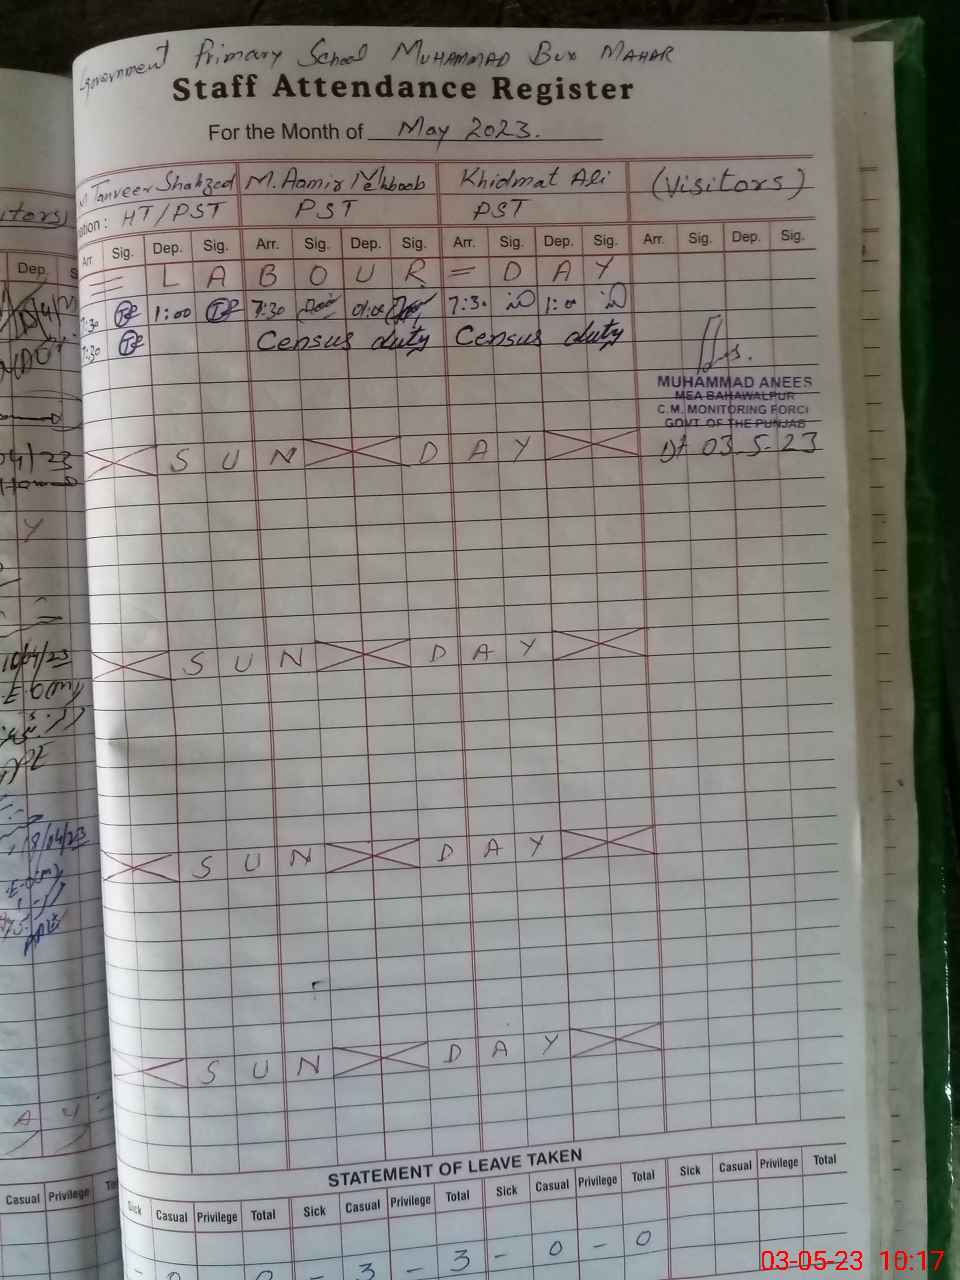 Government Primary School MUHAMMAD BUX MAHAR
Staff Attendance Register
For the Month of May 2023.
Tanveer Shahzad M. Aamir Mehboob Khidmat Ali (Visitors)
ation: HT/PST PST PST
Arr Sig. Dep. Sig. Arr. Sig. Dep. Sig. Arr. Sig. Dep. Sig. Arr. Sig. Dep. Sig.
= LABOUR = DAY
7:30 1:00 7:30 01:00 7:30 1:00
7:30 Census duty Census duty
MUHAMMAD ANEES
MEA BAHAWALPUR
C.M. MONITORING FORCE
GOVT OF THE PUNJAB
SUN DAY Dt 03-5-23
SUN DAY
SUN DAY
SUN DAY
STATEMENT OF LEAVE TAKEN
Sick Casual Privilege Total Sick Casual Privilege Total Sick Casual Privilege Total Sick Casual Privilege Total
- 0 - 3 - 3 - 0 - 0
itors)
Dep.
04/23
Y
10/04/23
18/04/23
A Y
Casual Privilege
03-05-23 10:17